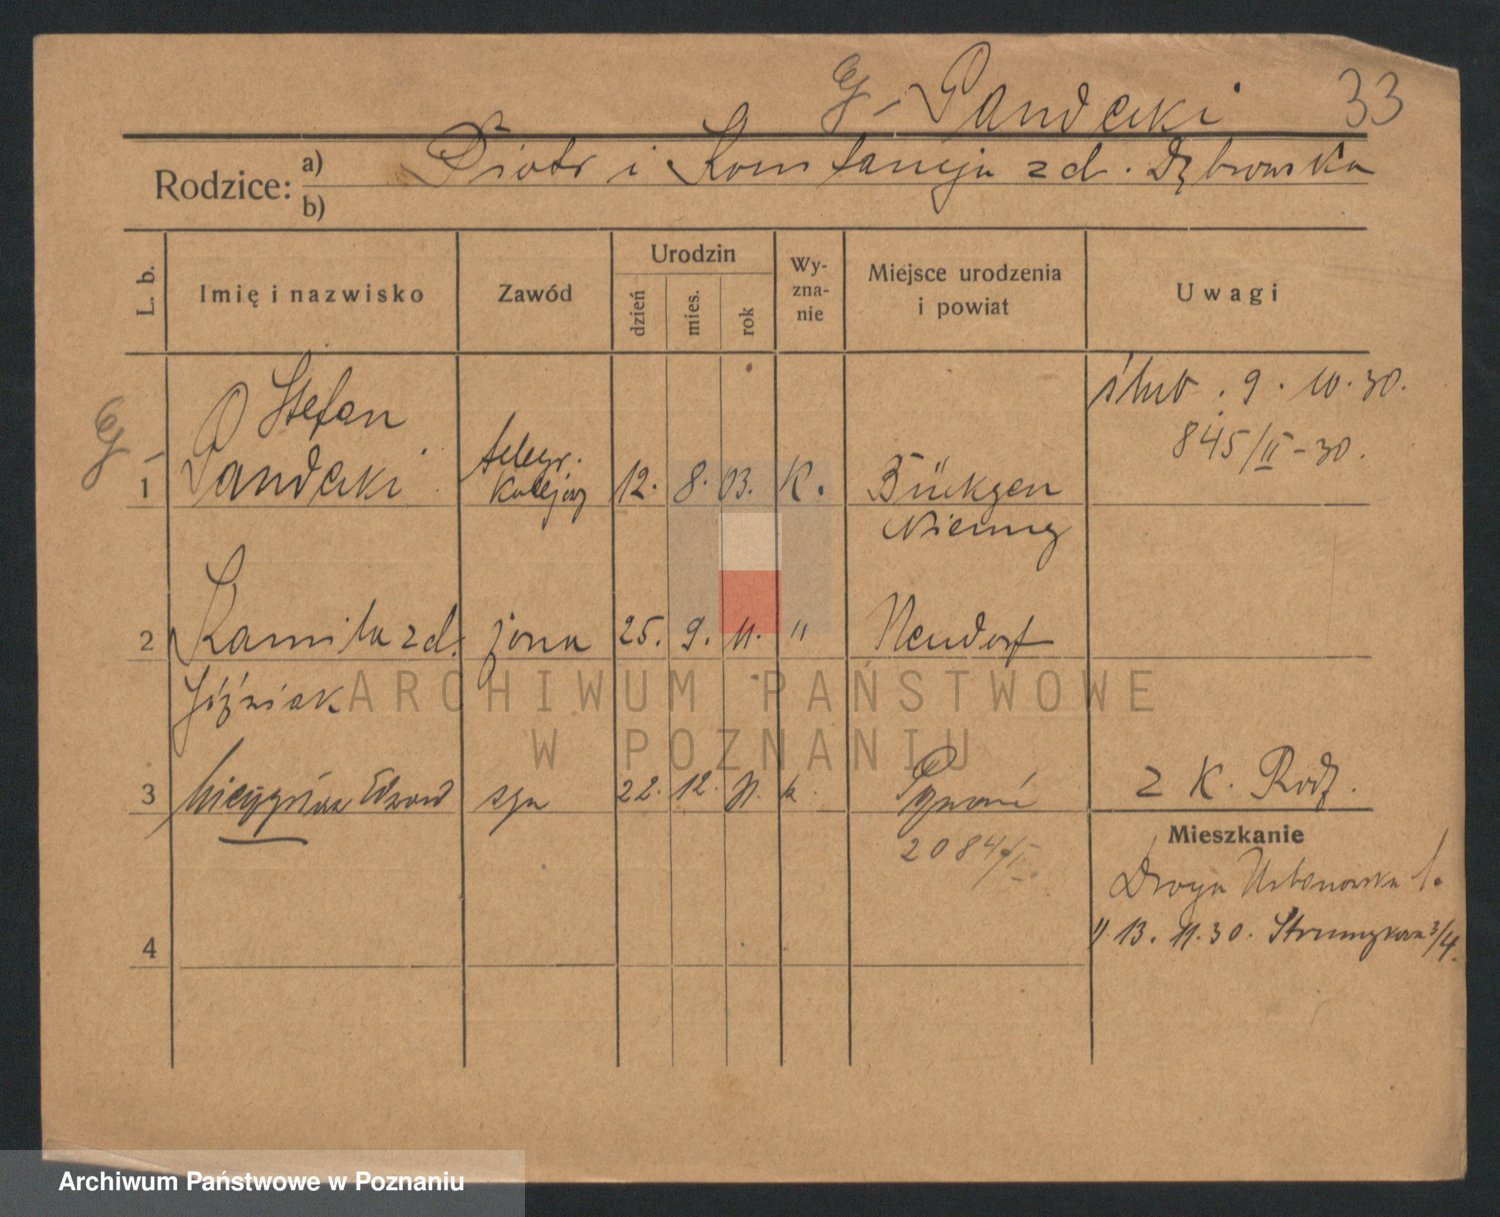 G - Pandecki 33
Rodzice: a) Piotr i Konstancja z d. Dębowska
b)
L. b.
Imię i nazwisko
Zawód
Urodzin
dzień
mies.
rok
Wy-
zna-
nie
Miejsce urodzenia
i powiat
Uwagi
ślub . 9 . 10 . 30 .
845/II - 30 .
G -
1 Stefan
Pandecki telegr.
kolejowy 12. 8. 03. K. Bückgen
Niemcy
2 Kamila z d. żona 25. 9. 11. " Neudorf
Jóźwiak
3 Edward syn 22. 12. k. Poznań z K. Rodz.
2084/I
Mieszkanie
Droga Urbanowska 1.
" 13. 11. 30. 3/4.
4
ARCHIWUM PAŃSTWOWE
W POZNANIU
Archiwum Państwowe w Poznaniu